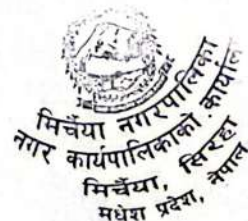 मिर्चैया नगरपालिका
नगर कार्यपालिकाको कार्याल
मिर्चैया, सिरहा
मधेश प्रदेश, नेपाल